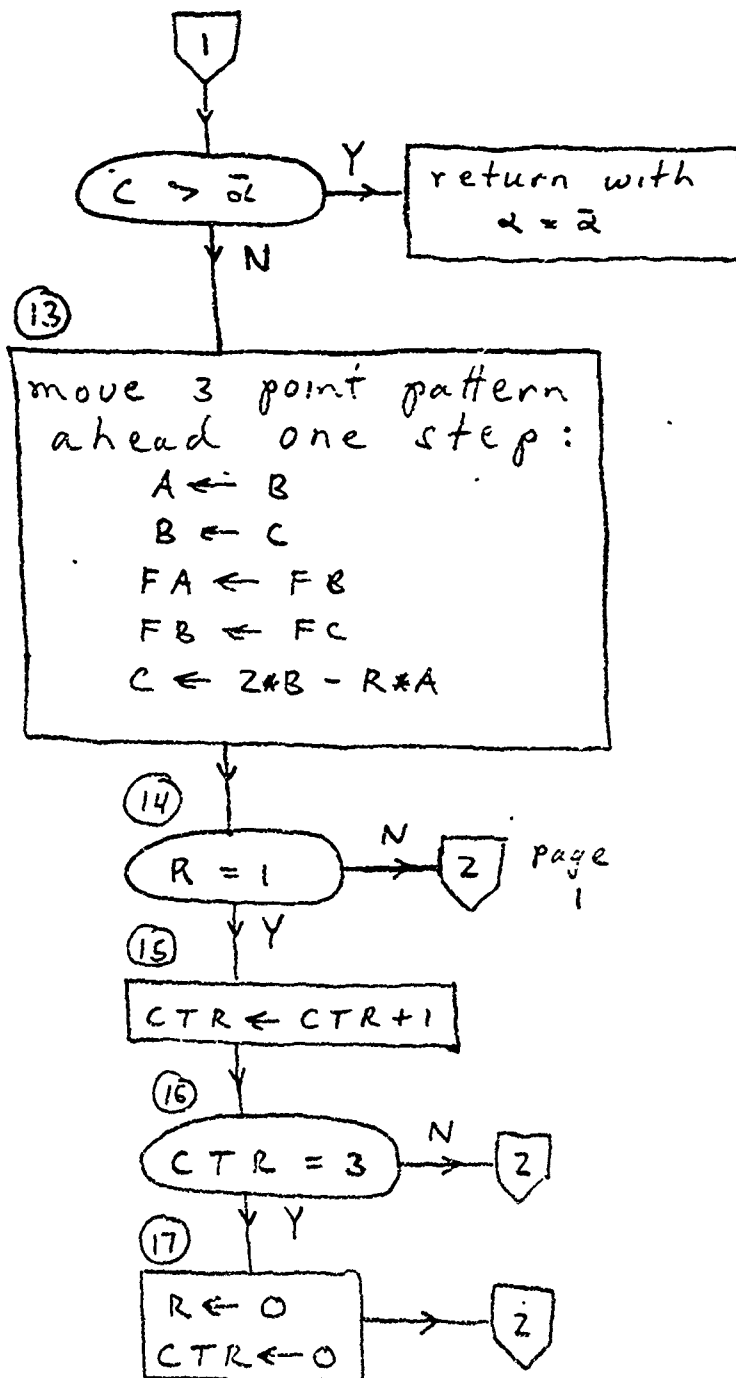 1
C > ᾱ
Y
return with
α = ᾱ
N
13
move 3 point pattern
ahead one step:
A ← B
B ← C
FA ← FB
FB ← FC
C ← 2*B - R*A
14
R = 1
N
2
page
1
Y
15
CTR ← CTR+1
16
CTR = 3
N
2
Y
17
R ← 0
CTR ← 0
2